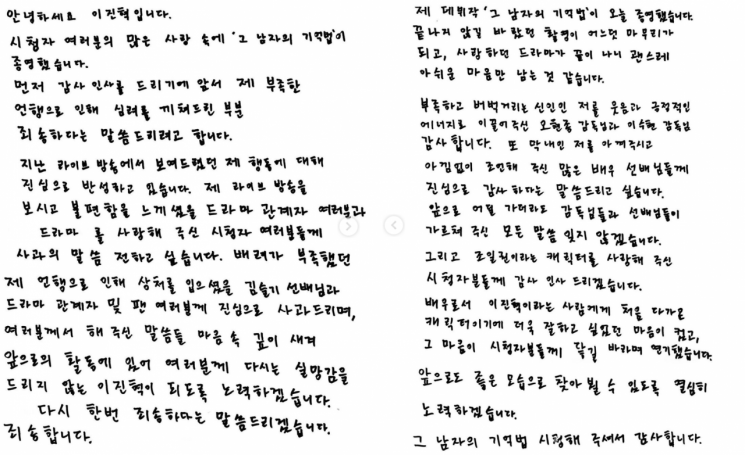 안녕하세요 이진혁입니다.
시청자 여러분의 많은 사랑 속에 '그 남자의 기억법'이
종영했습니다.
먼저 감사 인사를 드리기에 앞서 제 부족한
언행으로 인해 심려를 끼쳐드린 부분
죄송하다는 말씀드리려고 합니다.
지난 라이브 방송에서 보여드렸던 제 행동에 대해
진심으로 반성하고 있습니다. 제 라이브 방송을
보시고 불편함을 느끼셨을 드라마 관계자 여러분과
드라마 를 사랑해 주신 시청자 여러분들께
사과의 말씀 전하고 싶습니다. 배려가 부족했던
제 언행으로 인해 상처를 입으셨을 김슬기 선배님과
드라마 관계자 및 팬 여러분께 진심으로 사과드리며,
여러분께서 해 주신 말씀들 마음 속 깊이 새겨
앞으로의 활동에 있어 여러분께 다시는 실망감을
드리지 않는 이진혁이 되도록 노력하겠습니다.
다시 한번 죄송하다는 말씀드리겠습니다.
죄송합니다.
제 데뷔작 '그 남자의 기억법'이 오늘 종영했습니다.
끝나지 않길 바랐던 촬영이 어느덧 마무리가
되고, 사랑하던 드라마가 끝이 나니 괜스레
아쉬운 마음만 남는 것 같습니다.
부족하고 버벅거리는 신인인 저를 웃음과 긍정적인
에너지로 이끌어주신 오현종 감독님과 이수현 감독님
감사합니다. 또 막내인 저를 아껴주시고
아낌없이 조언해 주신 많은 배우 선배님들께
진심으로 감사 하다는 말씀드리고 싶습니다.
앞으로 어딜 가더라도 감독님들과 선배님들이
가르쳐 주신 모든 말씀 잊지 않겠습니다.
그리고 조일권이라는 캐릭터를 사랑해 주신
시청자분들께 감사 인사 드리겠습니다.
배우로서 이진혁이라는 사람에게 처음 다가온
캐릭터이기에 더욱 잘하고 싶었던 마음이 컸고,
그 마음이 시청자분들께 닿길 바라며 연기했습니다.
앞으로도 좋은 모습으로 찾아 뵐 수 있도록 열심히
노력하겠습니다.
그 남자의 기억법 시청해 주셔서 감사합니다.